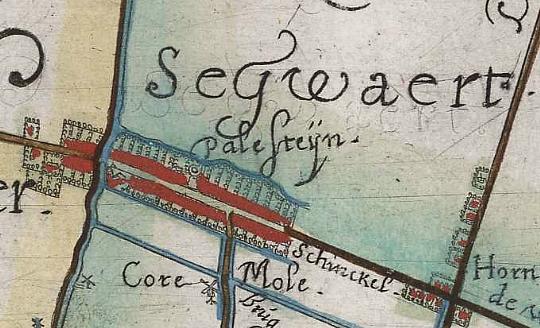 Segwaert.
Palesteijn.
er.
Schinckel
Core Mole.
brug
Horn
de